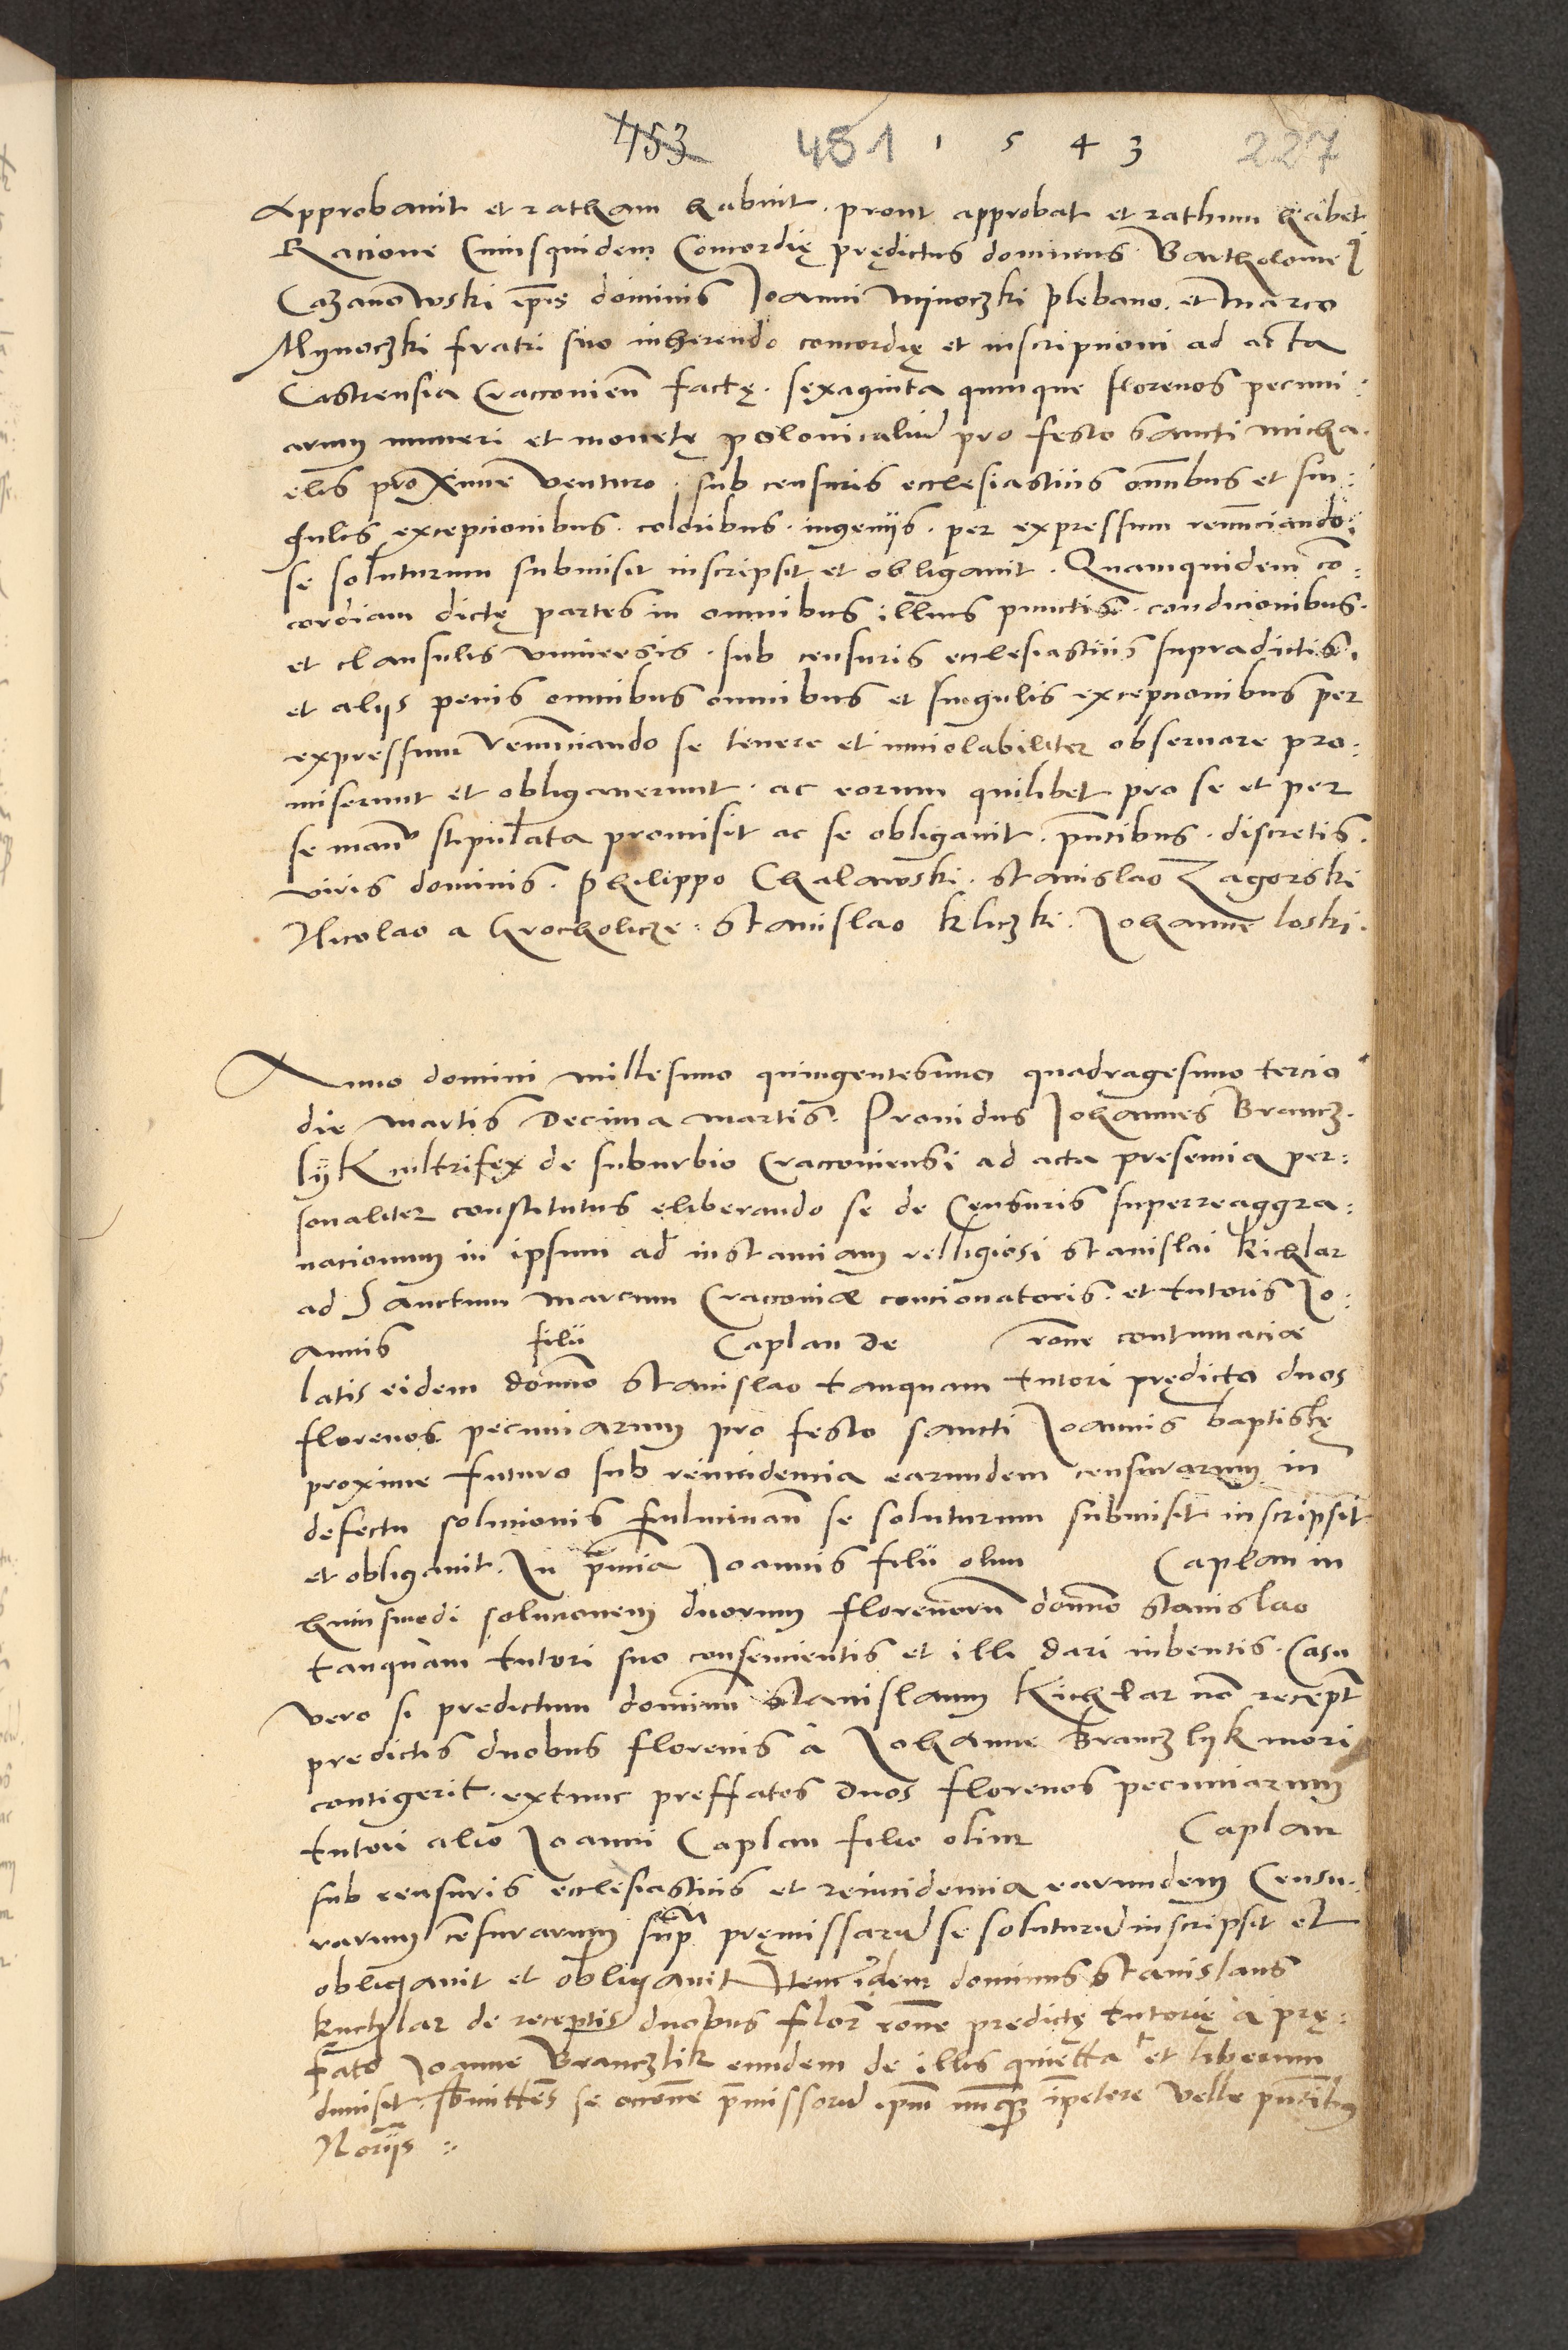 453 451 1 5 4 3 227
Approbavit et ratham habuit . prout approbat et rathum habet
Racione Cuiusquidem Concordię prędictus dominus Bartholomeꝯ
Cazanowski ip̄is dominis Joanni Mijnoczki plebano . et Marco
Mijnoczki fratri suo inherendo concordię et inscripcioni ad acta
Castrensia Cracovien̄ factę . sexaginta quinque florenos pecuni:
arum numeri et monetę polonicaliū pro festo sancti Micha:
elis proxime venturo . sub censuris ecclesiasticis om̄ibus et sin:
gulis excepcionibus . coloribus . ingenijs . per expressum renunciando:
se soluturum submisit inscripsit et obligavit . Quamquidem con:
cordiam dictę partes in omnibus illius punctis . condicionibus .
et clausulis universis . sub censuris ecclesiasticis supradictis .
et alijs penis omnibus omnibus et singulis excepcionibus per
expressum renunciando se tenere et inviolabiliter observare pro:
miserunt et obligaverunt . ac eorum quilibet pro se et per
se man̄ stipulata promisit ac se obligavit . pn̄tibus . discretis .
viris dominis . Philippo Chalawski . Stanislao Zagorski
Nicolao a Krocholicze . Stanislao Kliczki . Johanne Loski .
Anno domini Millesimo quingentesimo quadragesimo tercio
die Martis Decima Martis . Providus Johannes Brancz:
lijk cultrifex de suburbio Cracoviensi ad acta presencia per:
sonaliter constitutus eliberando se de Censuris superreaggra:
vacionum in ipsum ad instanciam relligiosi Stanislai Kichlar
ad Sanctum Marcum Cracoviæ concionatoris . et tutoris Jo:
annis filii Caplan de ro̅ne contumaciæ
latis eidem dom̄o Stanislao tanquam tutori prędicto duos
florenos pecuniarum pro festo sancti Joannis baptistę
proxime futuro sub reincidencia earundem censurarum in
defectu solucionis fulminan̄ se soluturum submisit inscripsit
et obligavit . In p̄ncia Joannis filii olim Caplan in
huiusmodi solucionem duorum florenorū dom̄o Stanislao
tanquam tutori suo consencientis et illi dari iubentis . Casu
vero si predictum dominū Stanislaum Kichlar non recept̄
predictis duobus florenis à Johanne Branczlijk mori
contigerit . extunc preffatos duos florenos pecuniarum
tutori alio Joanni Caplan filio olim Caplan
sub censuris ecclesiasticis et reincidencia earundem Censu:
rarum censurarum pręmissarū se soluturū inscripsit et
obligavit et obligavit Item idem dominus Stanislaus
Kuchlar de receptis duobus flor̄ ro̅ne predictę tutorię à prę:
fato Joanne Branczlik eundem de illis quietta͞t et liberum
dimisit . sb̄mittens se ro̅ne p̄missorū ip̄m nunq̄ȝ im̄petere velle pn̄tibus
Norijs :